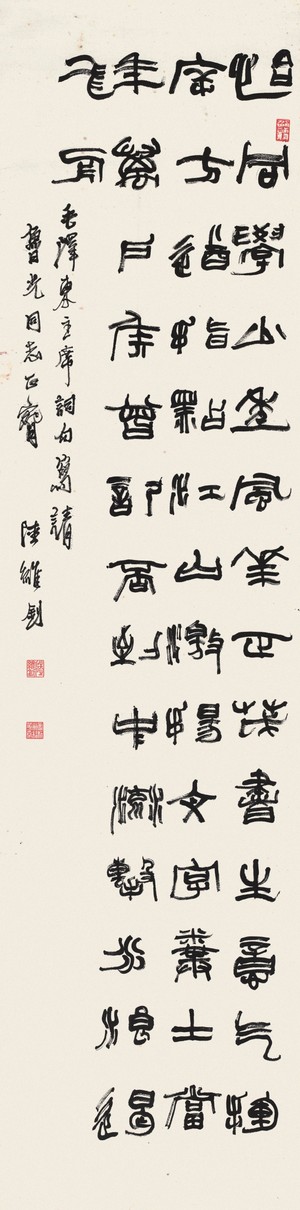 恰同學少年風華正茂書生意气揮
斥方遒指點江山激揚文字糞土當
年萬戶侯曾記否到中流擊水浪遏
飛舟
毛澤東主席詞句寫請
光同志正 陸維釗